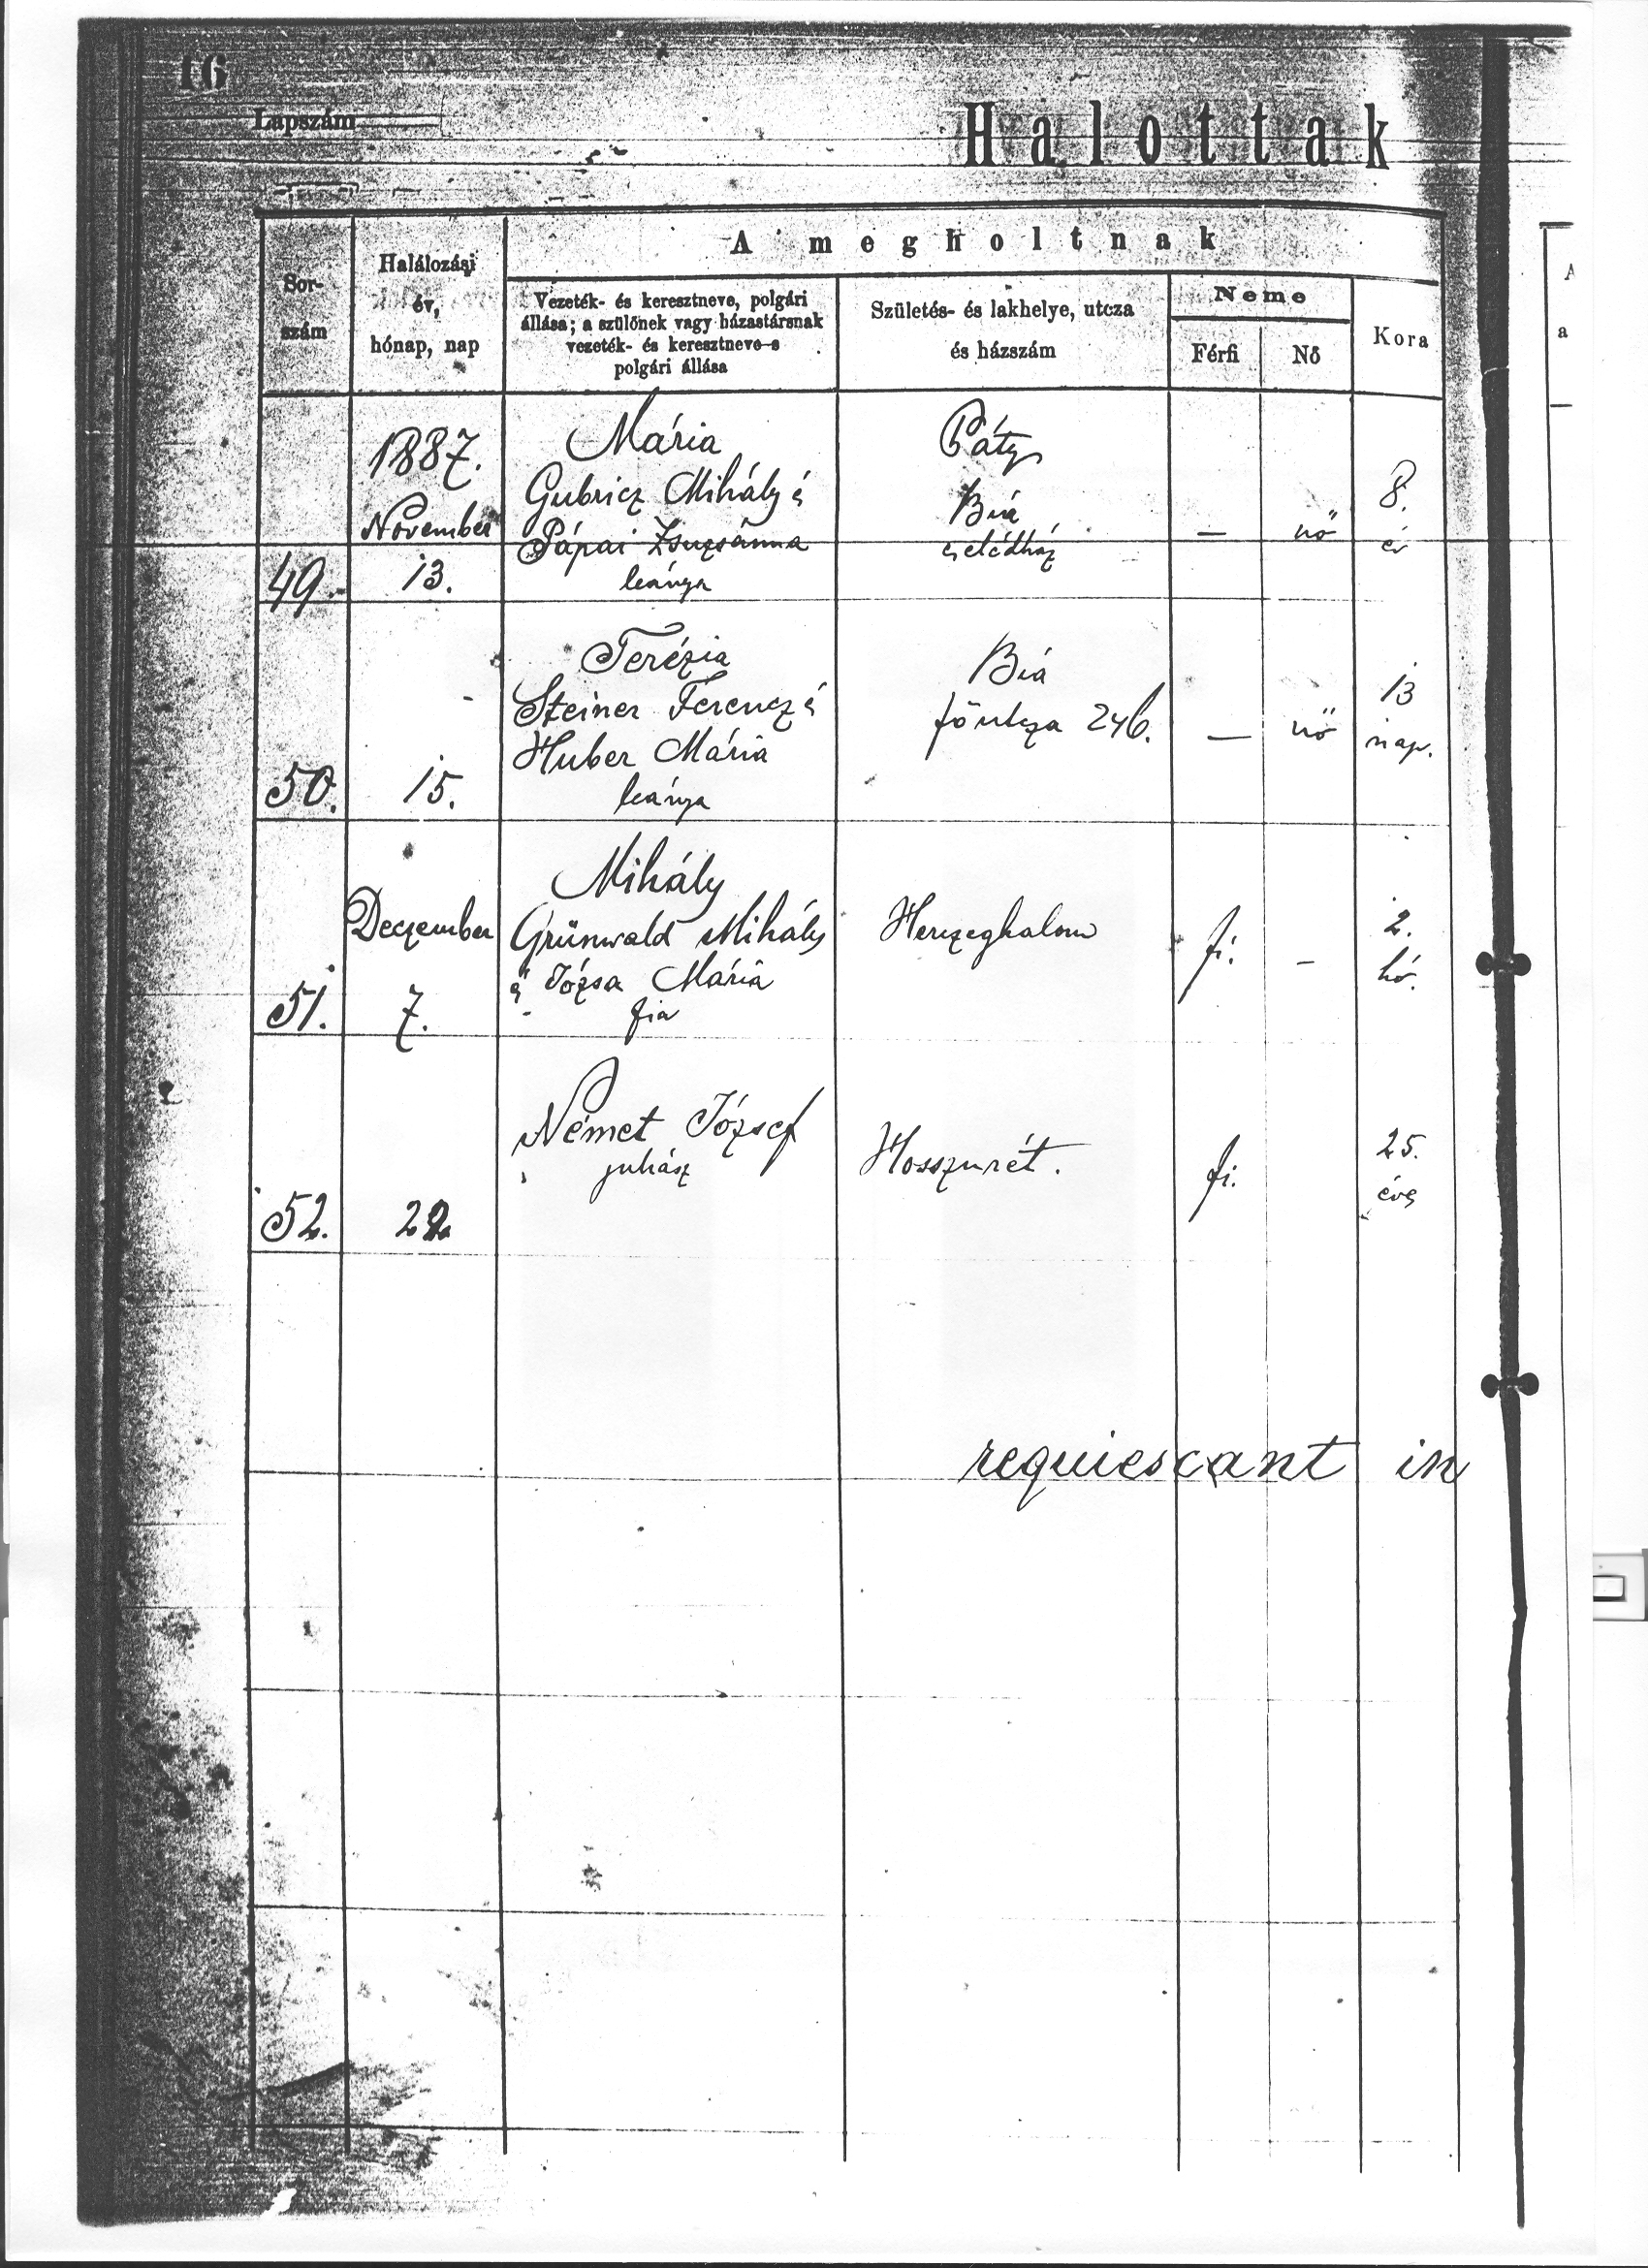 16
Lapszám
Halottak
A megholtnak
Sor-
szám
Halálozási
év,
hónap, nap
Vezeték- és keresztneve, polgári
állása; a szülőnek vagy házastársnak
vezeték- és keresztneve s
polgári állása
Születés- és lakhelye, utcza
és házszám
Neme
Férfi
Nő
Kora
A
a
49.
1887.
November
13.
Mária
Gubricz Mihály é
Pápai Zsuzsánna
leánya
Páty
Bia
cselédház
—
nő
8.
év
50.
15.
Terézia
Steiner Ferencz é
Huber Mária
leánya
Biá
főutcza 246.
—
nő
13
nap.
51.
Deczember
7.
Mihály
Grünwald Mihály
é Józsa Mária
fia
Herczeghalom
fi.
-
2.
hó.
52.
22
Német József
juhász
Hosszurét.
fi.
25.
éves
requiescant in